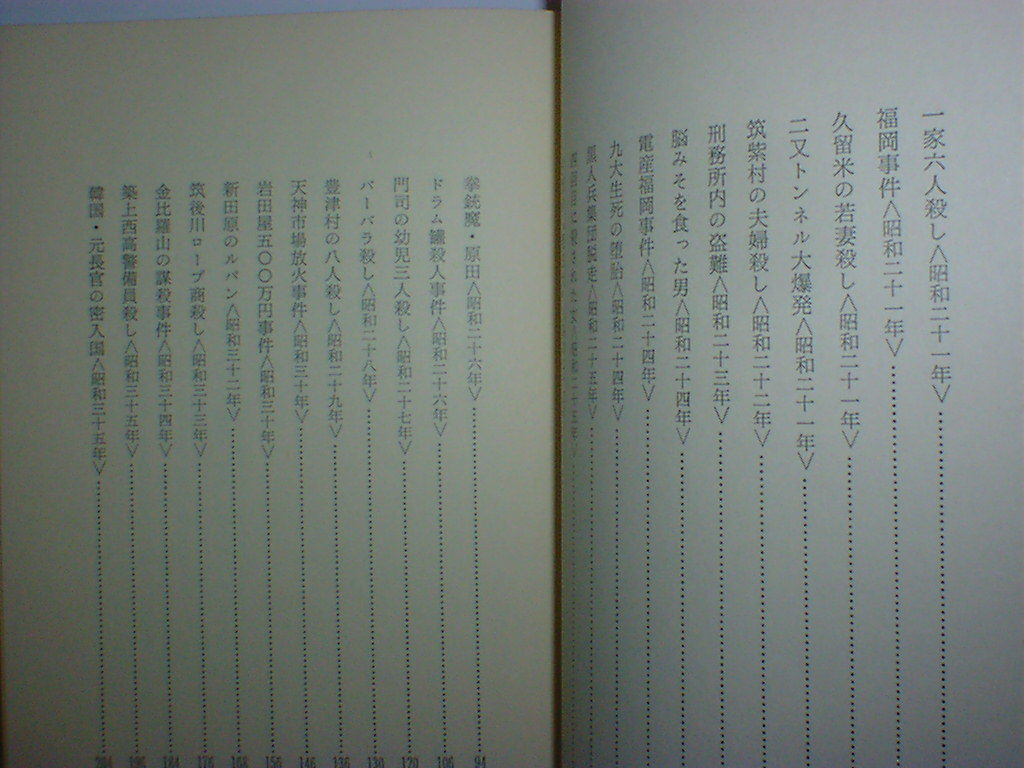 一家六人殺し＜昭和二十一年＞
福岡事件＜昭和二十一年＞
久留米の若妻殺し＜昭和二十一年＞
二又トンネル大爆発＜昭和二十一年＞
筑紫村の夫婦殺し＜昭和二十二年＞
刑務所内の盗難＜昭和二十三年＞
脳みそを食った男＜昭和二十四年＞
電産福岡事件＜昭和二十四年＞
九大生死の堕胎＜昭和二十四年＞
黒人兵集団脱走＜昭和二十五年＞
＜昭和二十五年＞
拳銃魔・原田＜昭和二十六年＞ 94
ドラム罐殺人事件＜昭和二十六年＞ 106
門司の幼児三人殺し＜昭和二十七年＞ 120
バーバラ殺し＜昭和二十八年＞ 130
豊津村の八人殺し＜昭和二十九年＞ 136
天神市場放火事件＜昭和三十年＞ 146
岩田屋五〇〇万円事件＜昭和三十年＞ 156
新田原のルパン＜昭和三十二年＞ 168
筑後川ロープ商殺し＜昭和三十三年＞ 176
金比羅山の謀殺事件＜昭和三十四年＞ 184
築上西高警備員殺し＜昭和三十五年＞ 196
韓国・元長官の密入国＜昭和三十五年＞ 204